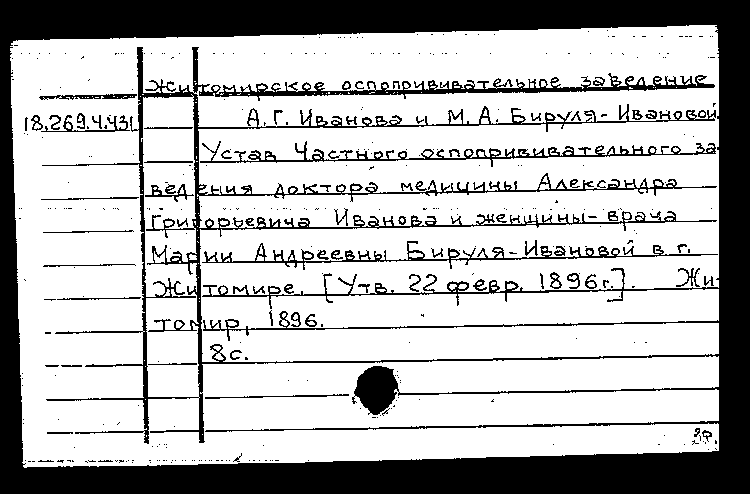 Житомирское оспопрививательное заведение
18.269.4.431 А.Г. Иванова и М.А. Бируля-Ивановой.
Устав Частного оспопрививательного за-
ведения доктора медицины Александра
Григорьевича Иванова и женщины-врача
Марии Андреевны Бируля-Ивановой в г.
Житомире. [Утв. 22 февр. 1896г.]. Жи-
томир, 1896.
8с.